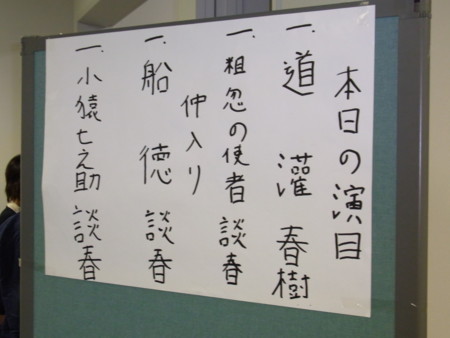 本日の演目
一、道灌 春樹
一、粗忽の使者 談春
仲入り
一、船徳 談春
一、小猿七之助 談春